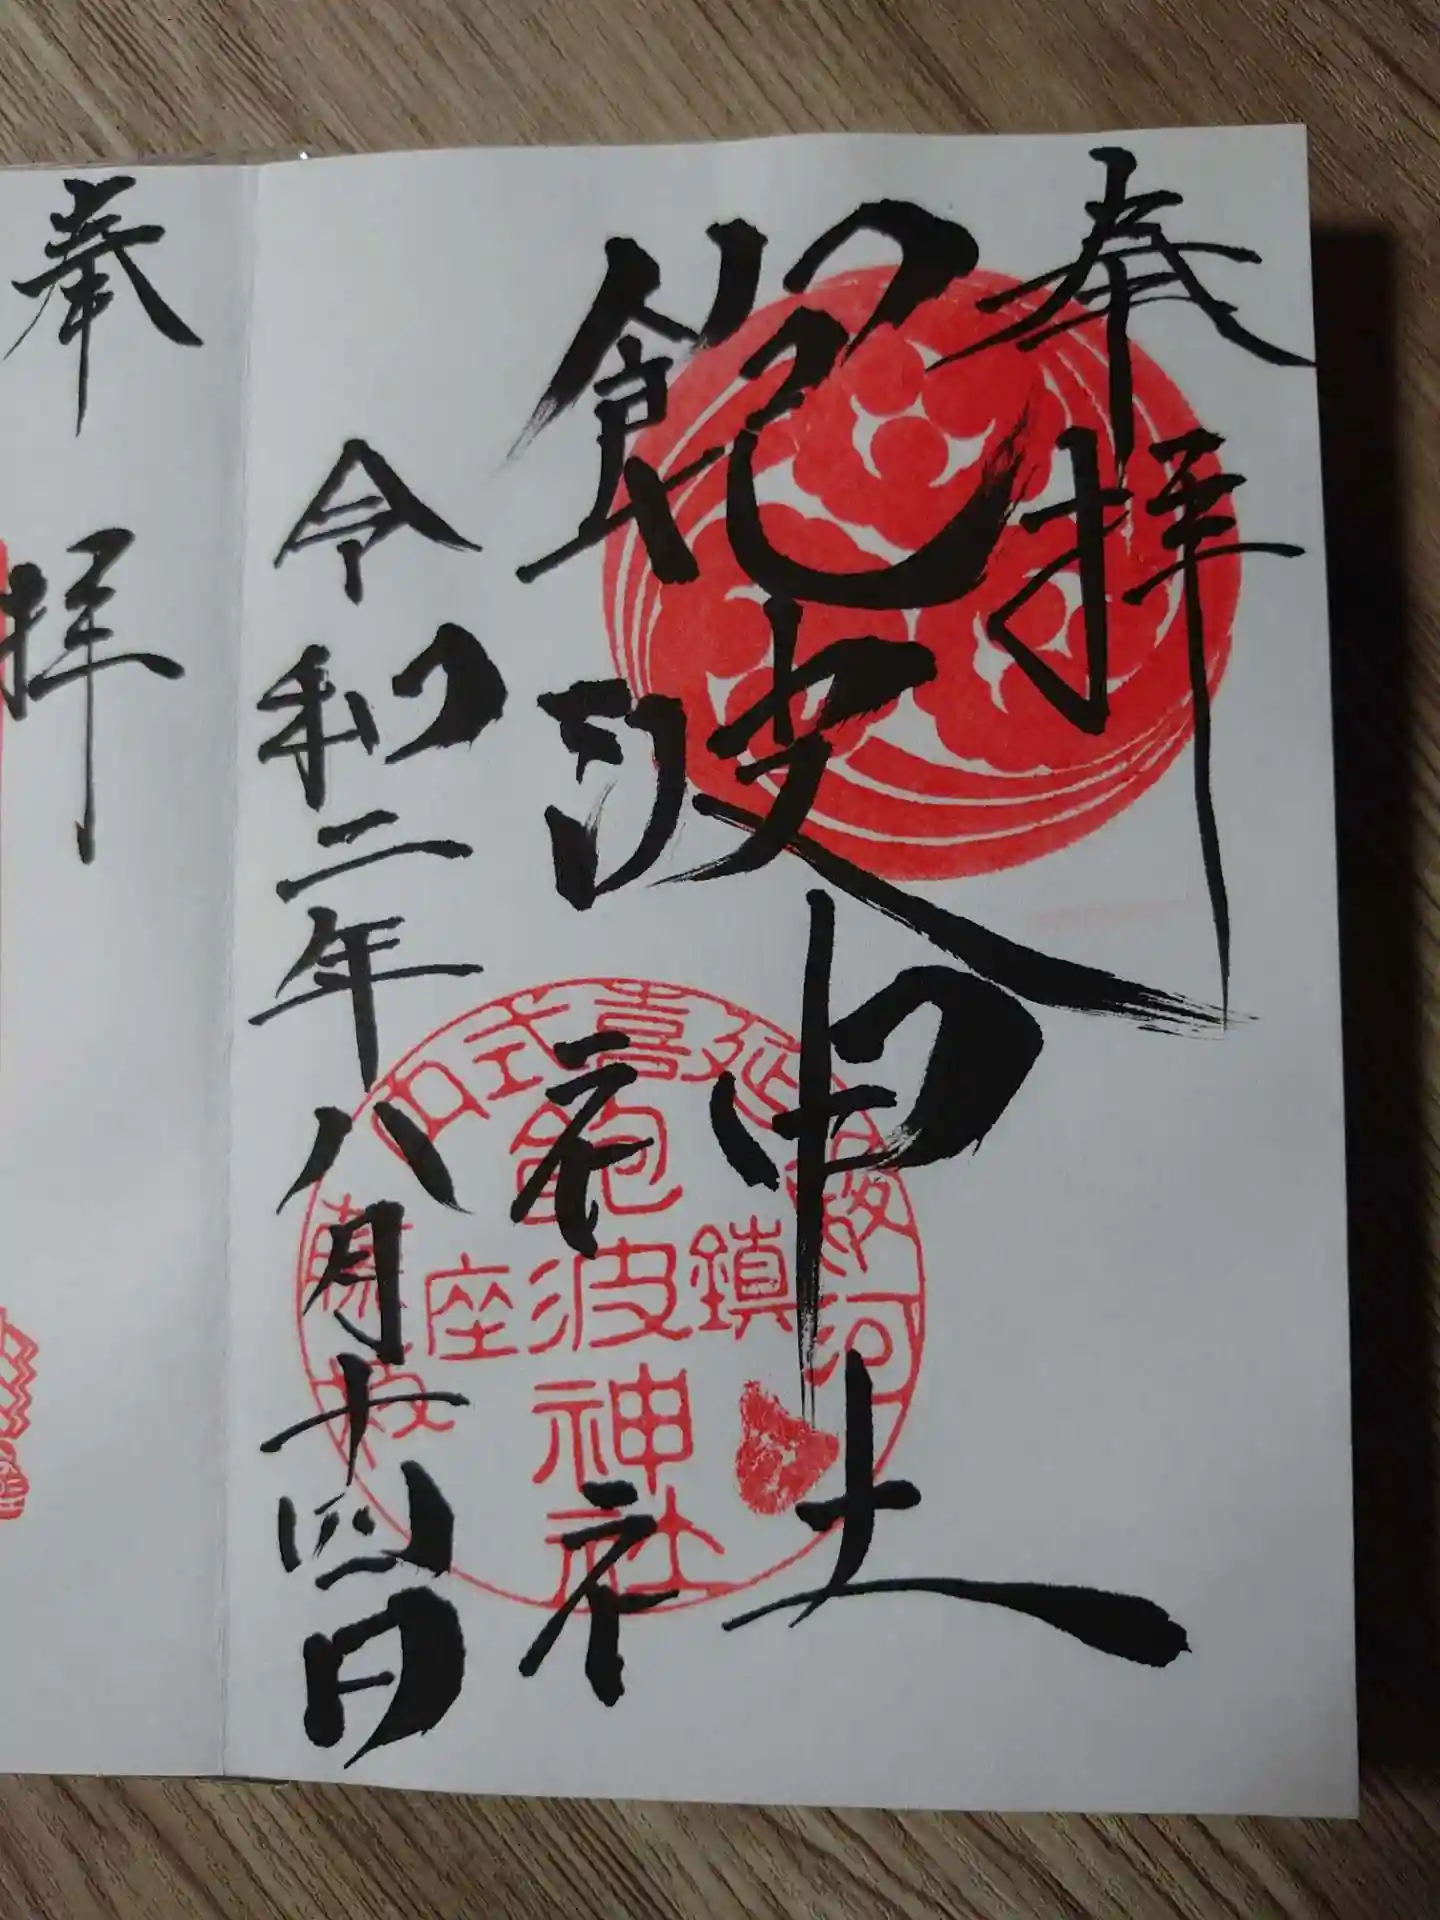 奉拝
飽波神社
令和二年八月十四日
駿河
延喜式内
藤枝
鎮座
飽波神社
奉拝